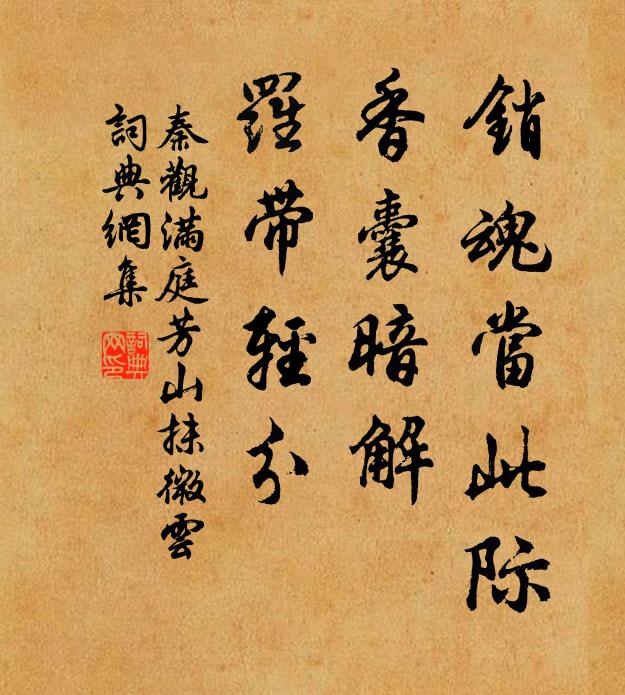 銷魂當此际
香囊暗解
羅帶輕分
秦觀滿庭芳山抹微雲
詞典網集
詞典
网印